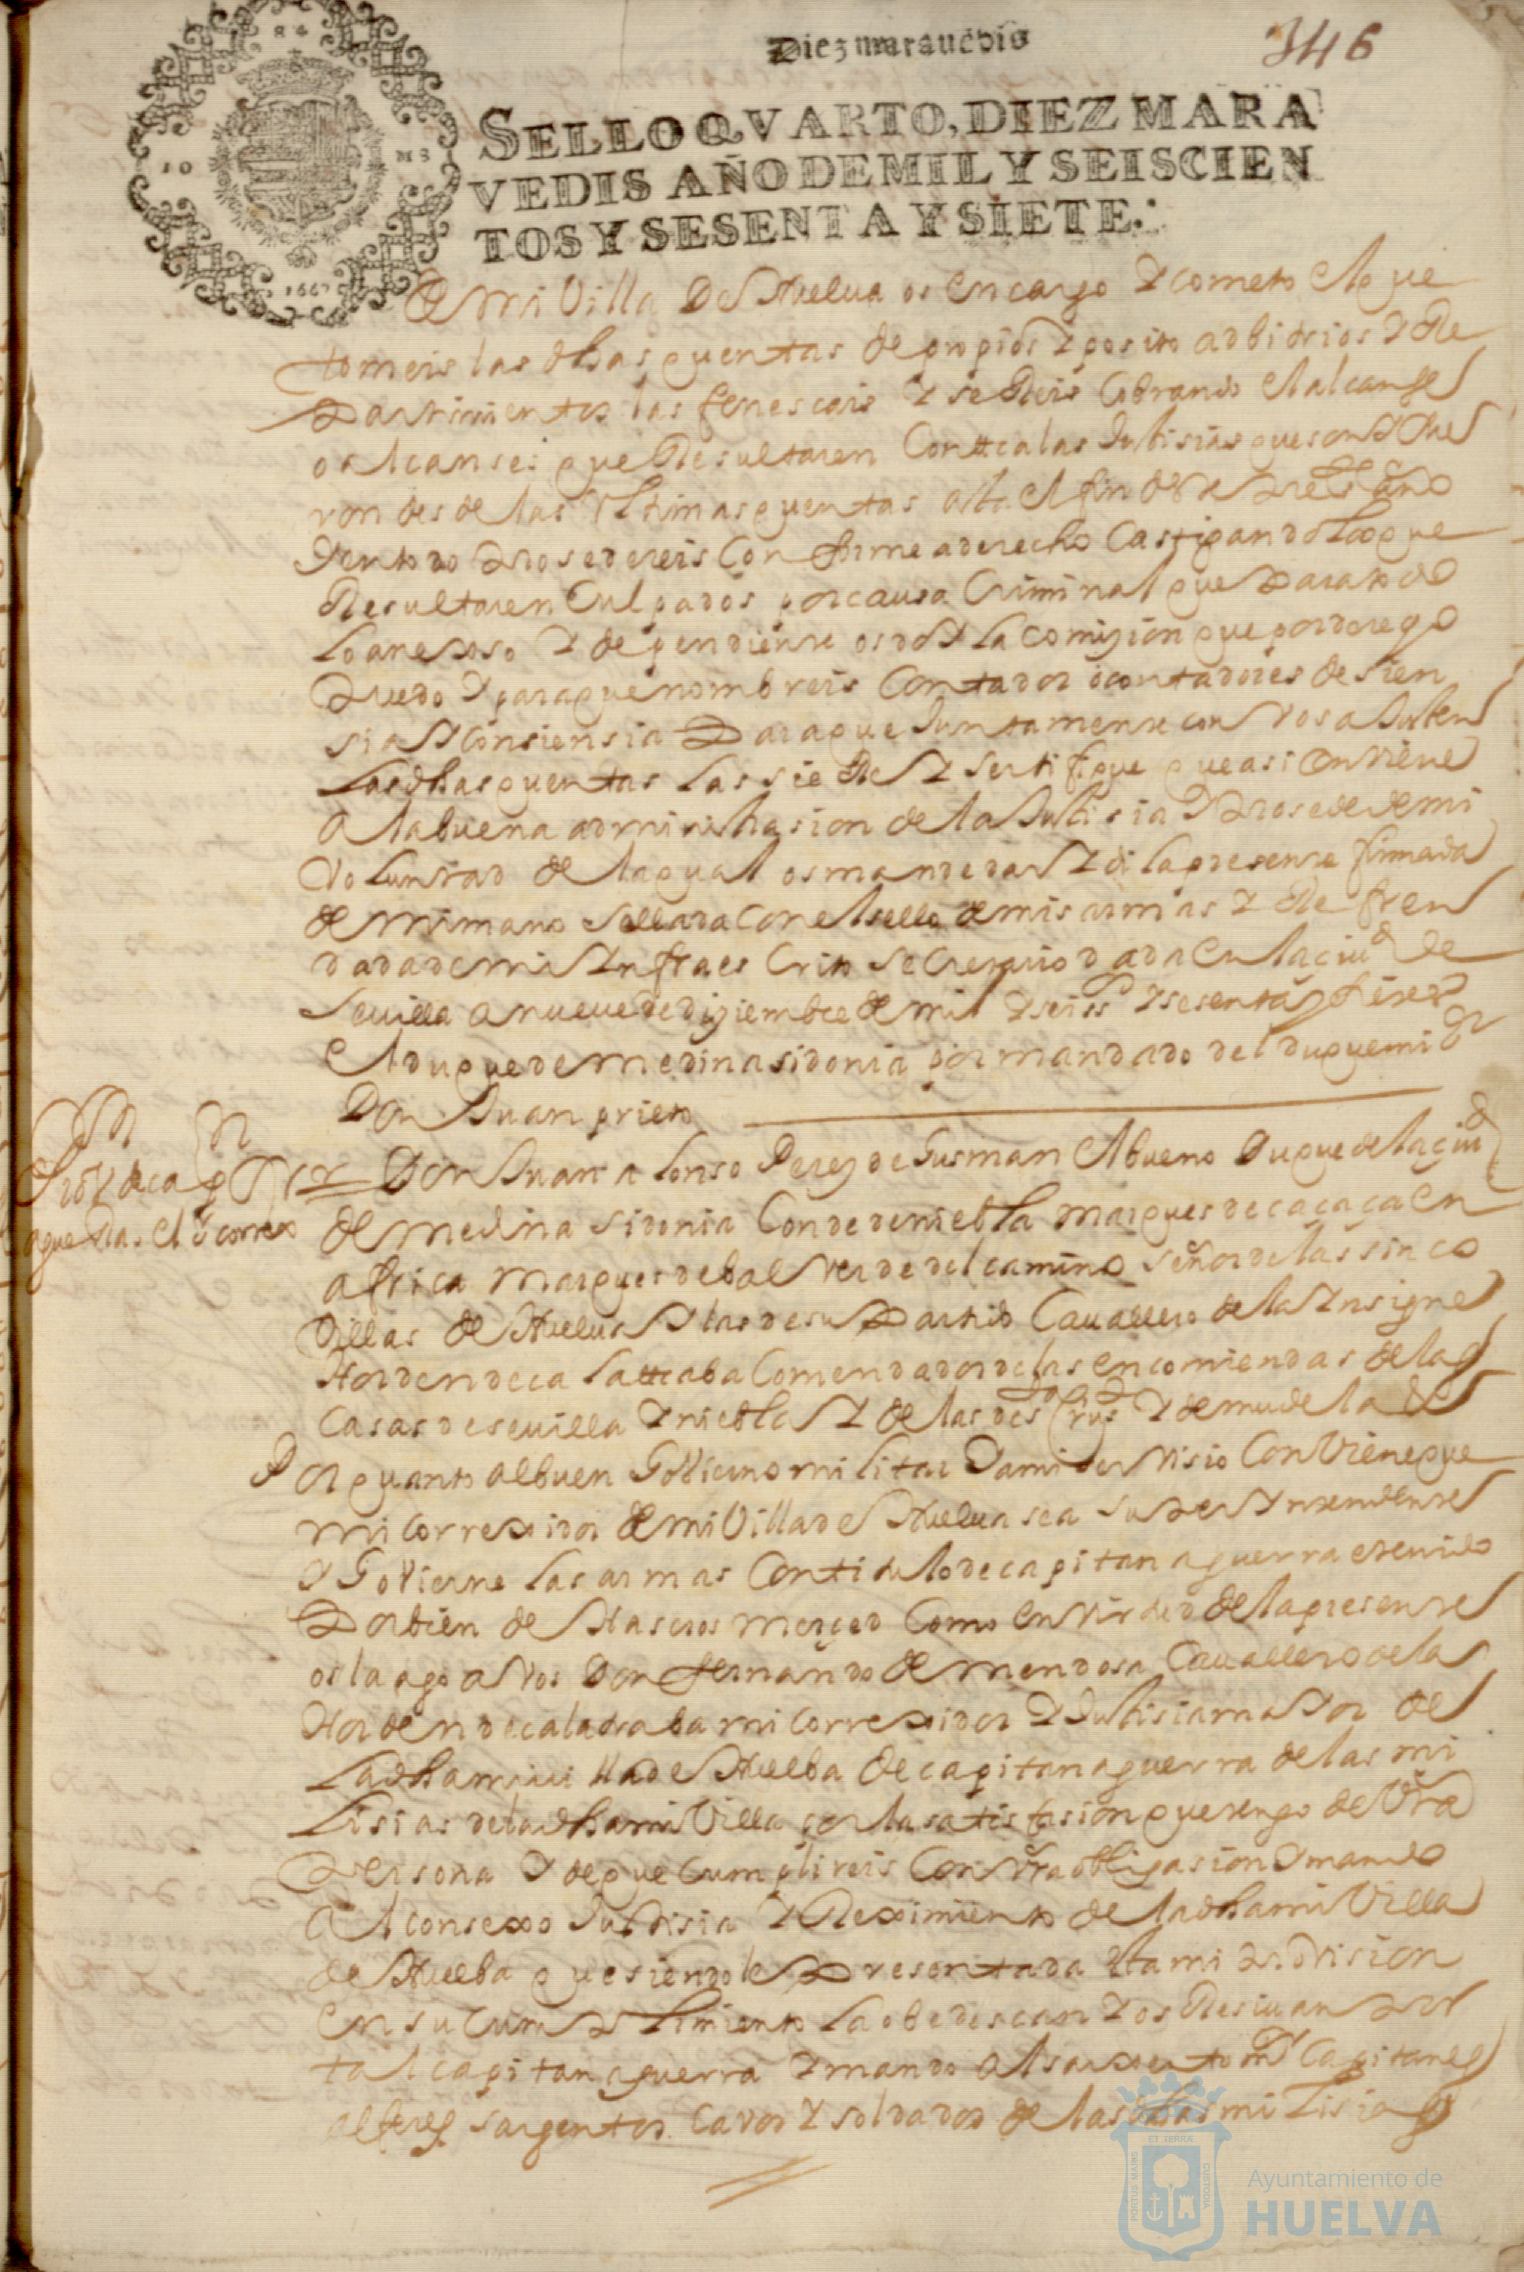 Diez maravedis
346
SELLO QVARTO, DIEZ MARA
VEDIS AÑO DE MIL Y SEISCIEN
TOS Y SESENTA Y SIETE.
1667
de mi Villa de Huelua os encargo y cometo el que
tomeis las dhas quentas de propios y posito adbitrios y Re
partimientos las fenescais y cobrando el alcanse
o alcanses que Resultaren Contra las Justisias que son y fue
ron desde las Vltimas quentas asta el fin de este preste año
y en todo prosedereis Conforme a derecho Castigando los que
Resultaren Culpados por causa Criminal que para todo
lo anexso y dependiente os doy la comision que por derecho
puedo y para que nombreis Contador o contadores de sien
sia y consiensia para que Juntamente con vos ajusten
las dhas quentas que asi conviene
a la buena administrasion de la Justisia y prosede de mi
Voluntad de la qual os mande dar y di la presente firmada
de mi mano sellada con el sello de mis armas y Refren
dada de mi Infraescrito secretario dada en la ciud de
Seuilla a nueue de diziembre de mil y seiss y sesenta y siete
El duque de medina sidonia por mandado del duque mi sr
Don Juan prieto
Don Juan alonso Perez de Gusman el bueno Duque de la ciud
de medina sidonia Conde de niebla marques de caçaça en
africa marques de balverde del camino señor de las sinco
Villas de Huelua y las de su partido Cauallero de la Insigne
Horden de calatraba Comendador de las encomiendas de las
casas de seuilla y niebla y de las
Por quanto al buen Govierno militar y a mi serVisio ConViene que
mi correxidor de mi Villa de Huelua sea superyntendente
y Govierne las armas Con titulo de capitan a guerra e tenido
por bien de Haseros merced Como en virtud de la presente
os la ago a Vos Don fernando de mendosa Cauallero de la
Horden de calatraba mi correxidor y Justisia mayor de
la dha mi villa de Huelba de capitan a guerra de las mi
lisias de la dha mi Villa por la satisfasion que tengo de Vra
persona y de que cumplireis Con Vra obligasion y mando
al consexo Justisia y Reximiento de la dha mi Villa
de Huelba que siendoles presentada esta mi provision
en su cumplimiento la obedescan y os Resiuan por
tal capitan a guerra y mando al sarxento mr Capitanes
alferez sargentos cavos y soldados de las dhas milisias
ET TERRÆ
PORTUS MARIS
CUSTODIA
Ayuntamiento de
HUELVA